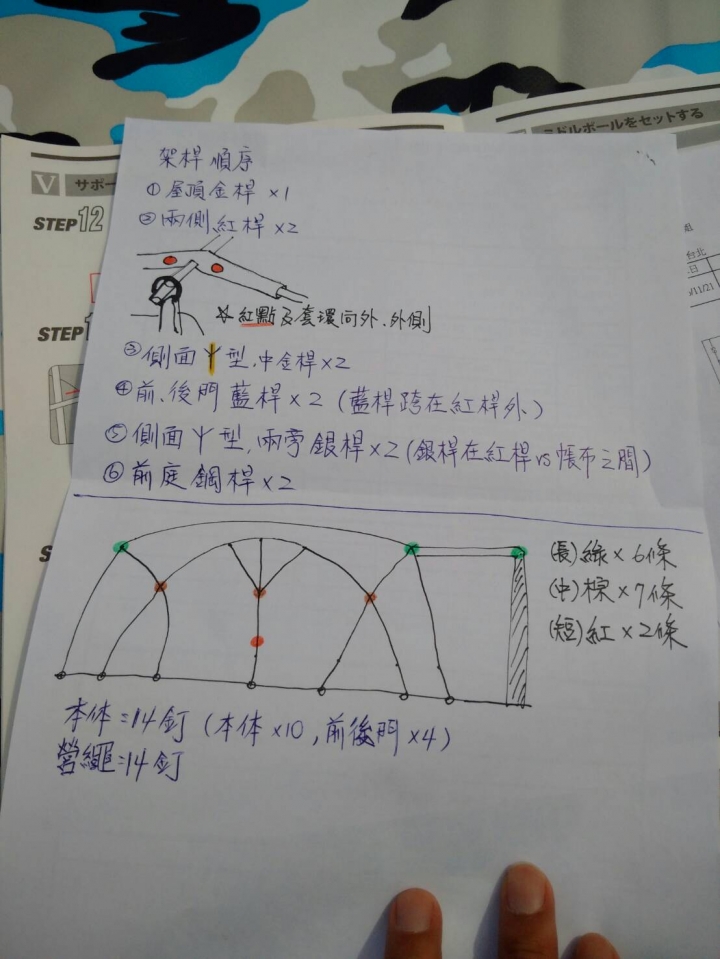 ミドルポールをセットする
V サポー
STEP12
STEP
台北
架桿順序
①屋頂金桿×1
②兩側紅桿×2
☆紅點及套環向外、外側
③側面丫型,中金桿×2
④前、後門藍桿×2(藍桿跨在紅桿外)
⑤側面丫型,兩旁銀桿×2(銀桿在紅桿vs帳布之間)
⑥前庭鋼桿×2
(長)綠×6條
(中)棕×7條
(短)紅×2條
本体=14釘(本体×10,前後門×4)
營繩=14釘